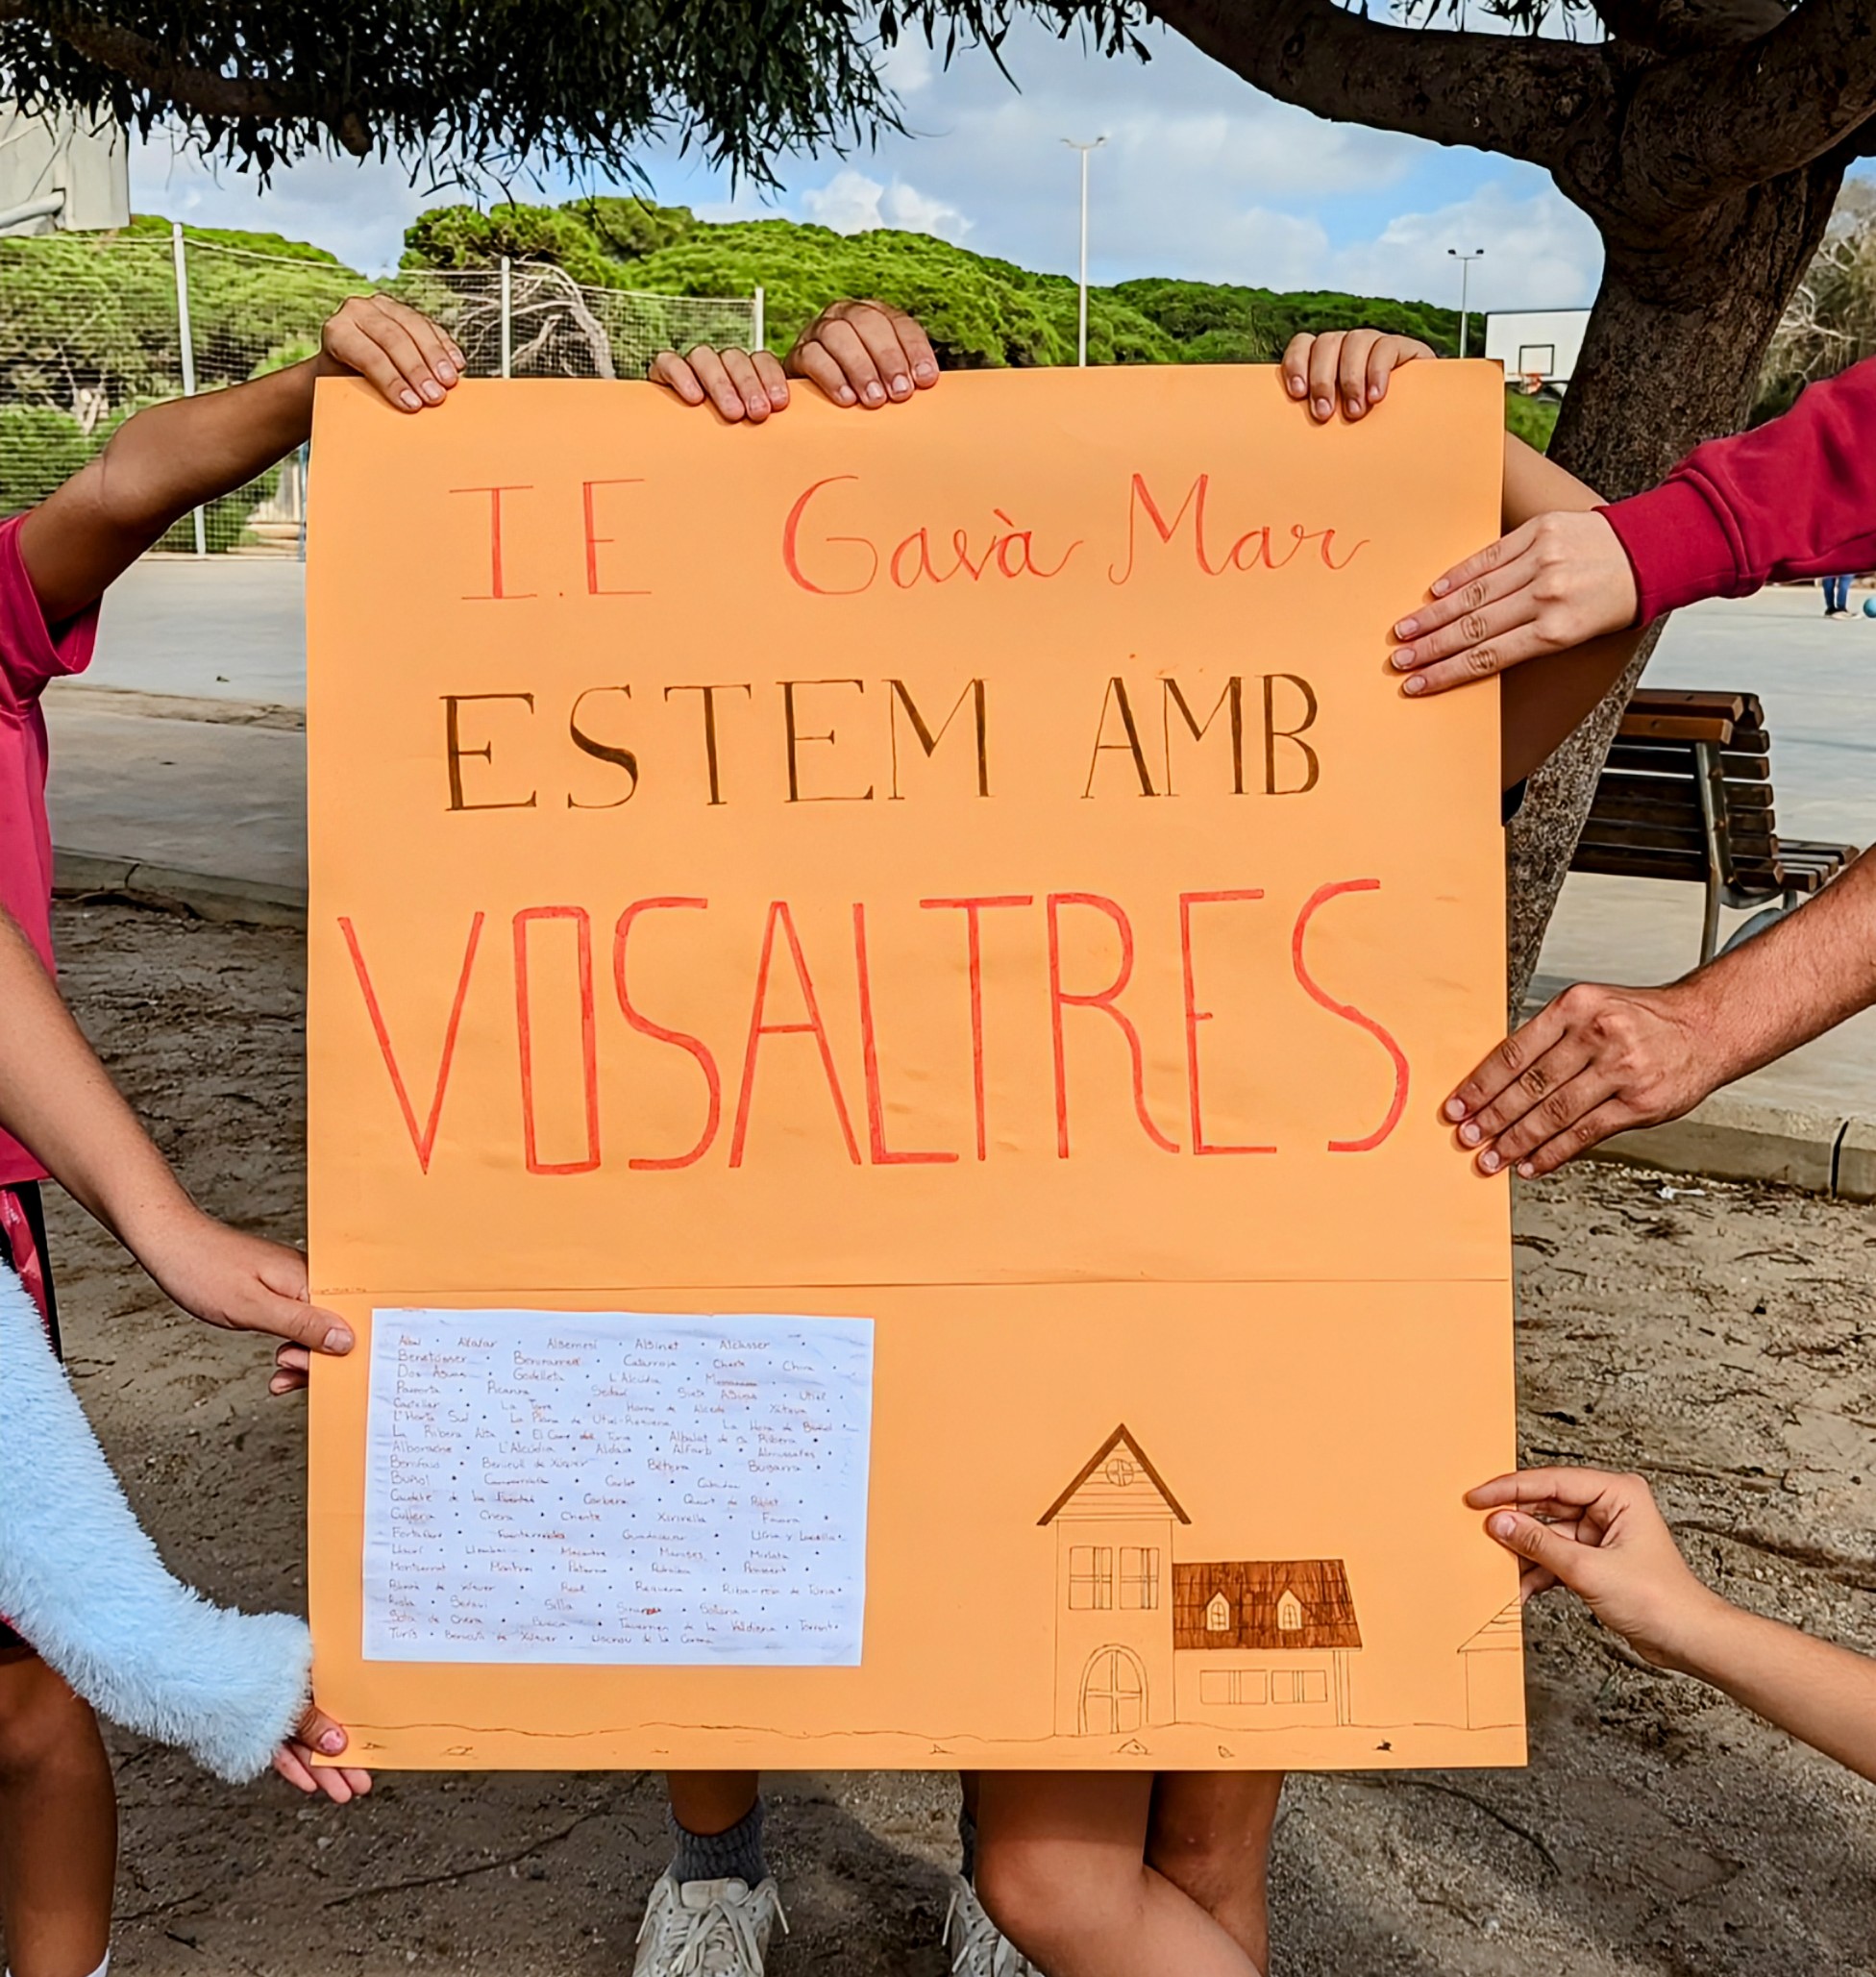 I.E Gavà Mar
ESTEM AMB
VOSALTRES
Albal • Alfafar • Algemesí • Alginet • Alcàsser •
Benetússer • Beniparrell • Catarroja • Cheste • Chiva •
Dos Aguas • Godelleta • L'Alcúdia •
Paiporta • Picanya • Sedaví • Siete Aguas • Utiel •
Castellar • La Torre • Horno de Alcedo • Xàtiva •
L'Horta Sud • La Plana de Utiel-Requena • La Hoya de Buñol •
La Ribera Alta • El Camp del Túria • Albalat de la Ribera •
Alborache • L'Alcúdia • Aldaia • Alfarb • Almussafes •
Benifaió • Benicull de Xúquer • Bétera • Bugarra •
Buñol • • Carlet •
Caudete de las Fuentes • Corbera • Quart de Poblet •
Cullera • Chera • Xirivella • Favara •
Fortaleny • Fuenterrobles • Guadassuar •
Llaurí • Llombai • Macastre • Manises • Mislata •
Montserrat • Montroi • Paterna • Pedralba •
• Real • Requena • Riba-roja de Túria •
• Sedaví • Silla • • Sollana •
Sot de Chera • Sueca • Tavernes de la Valldigna • Torrent •
Turís •